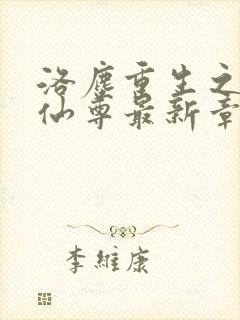 洛塵重生之
仙尊最新章
李維康